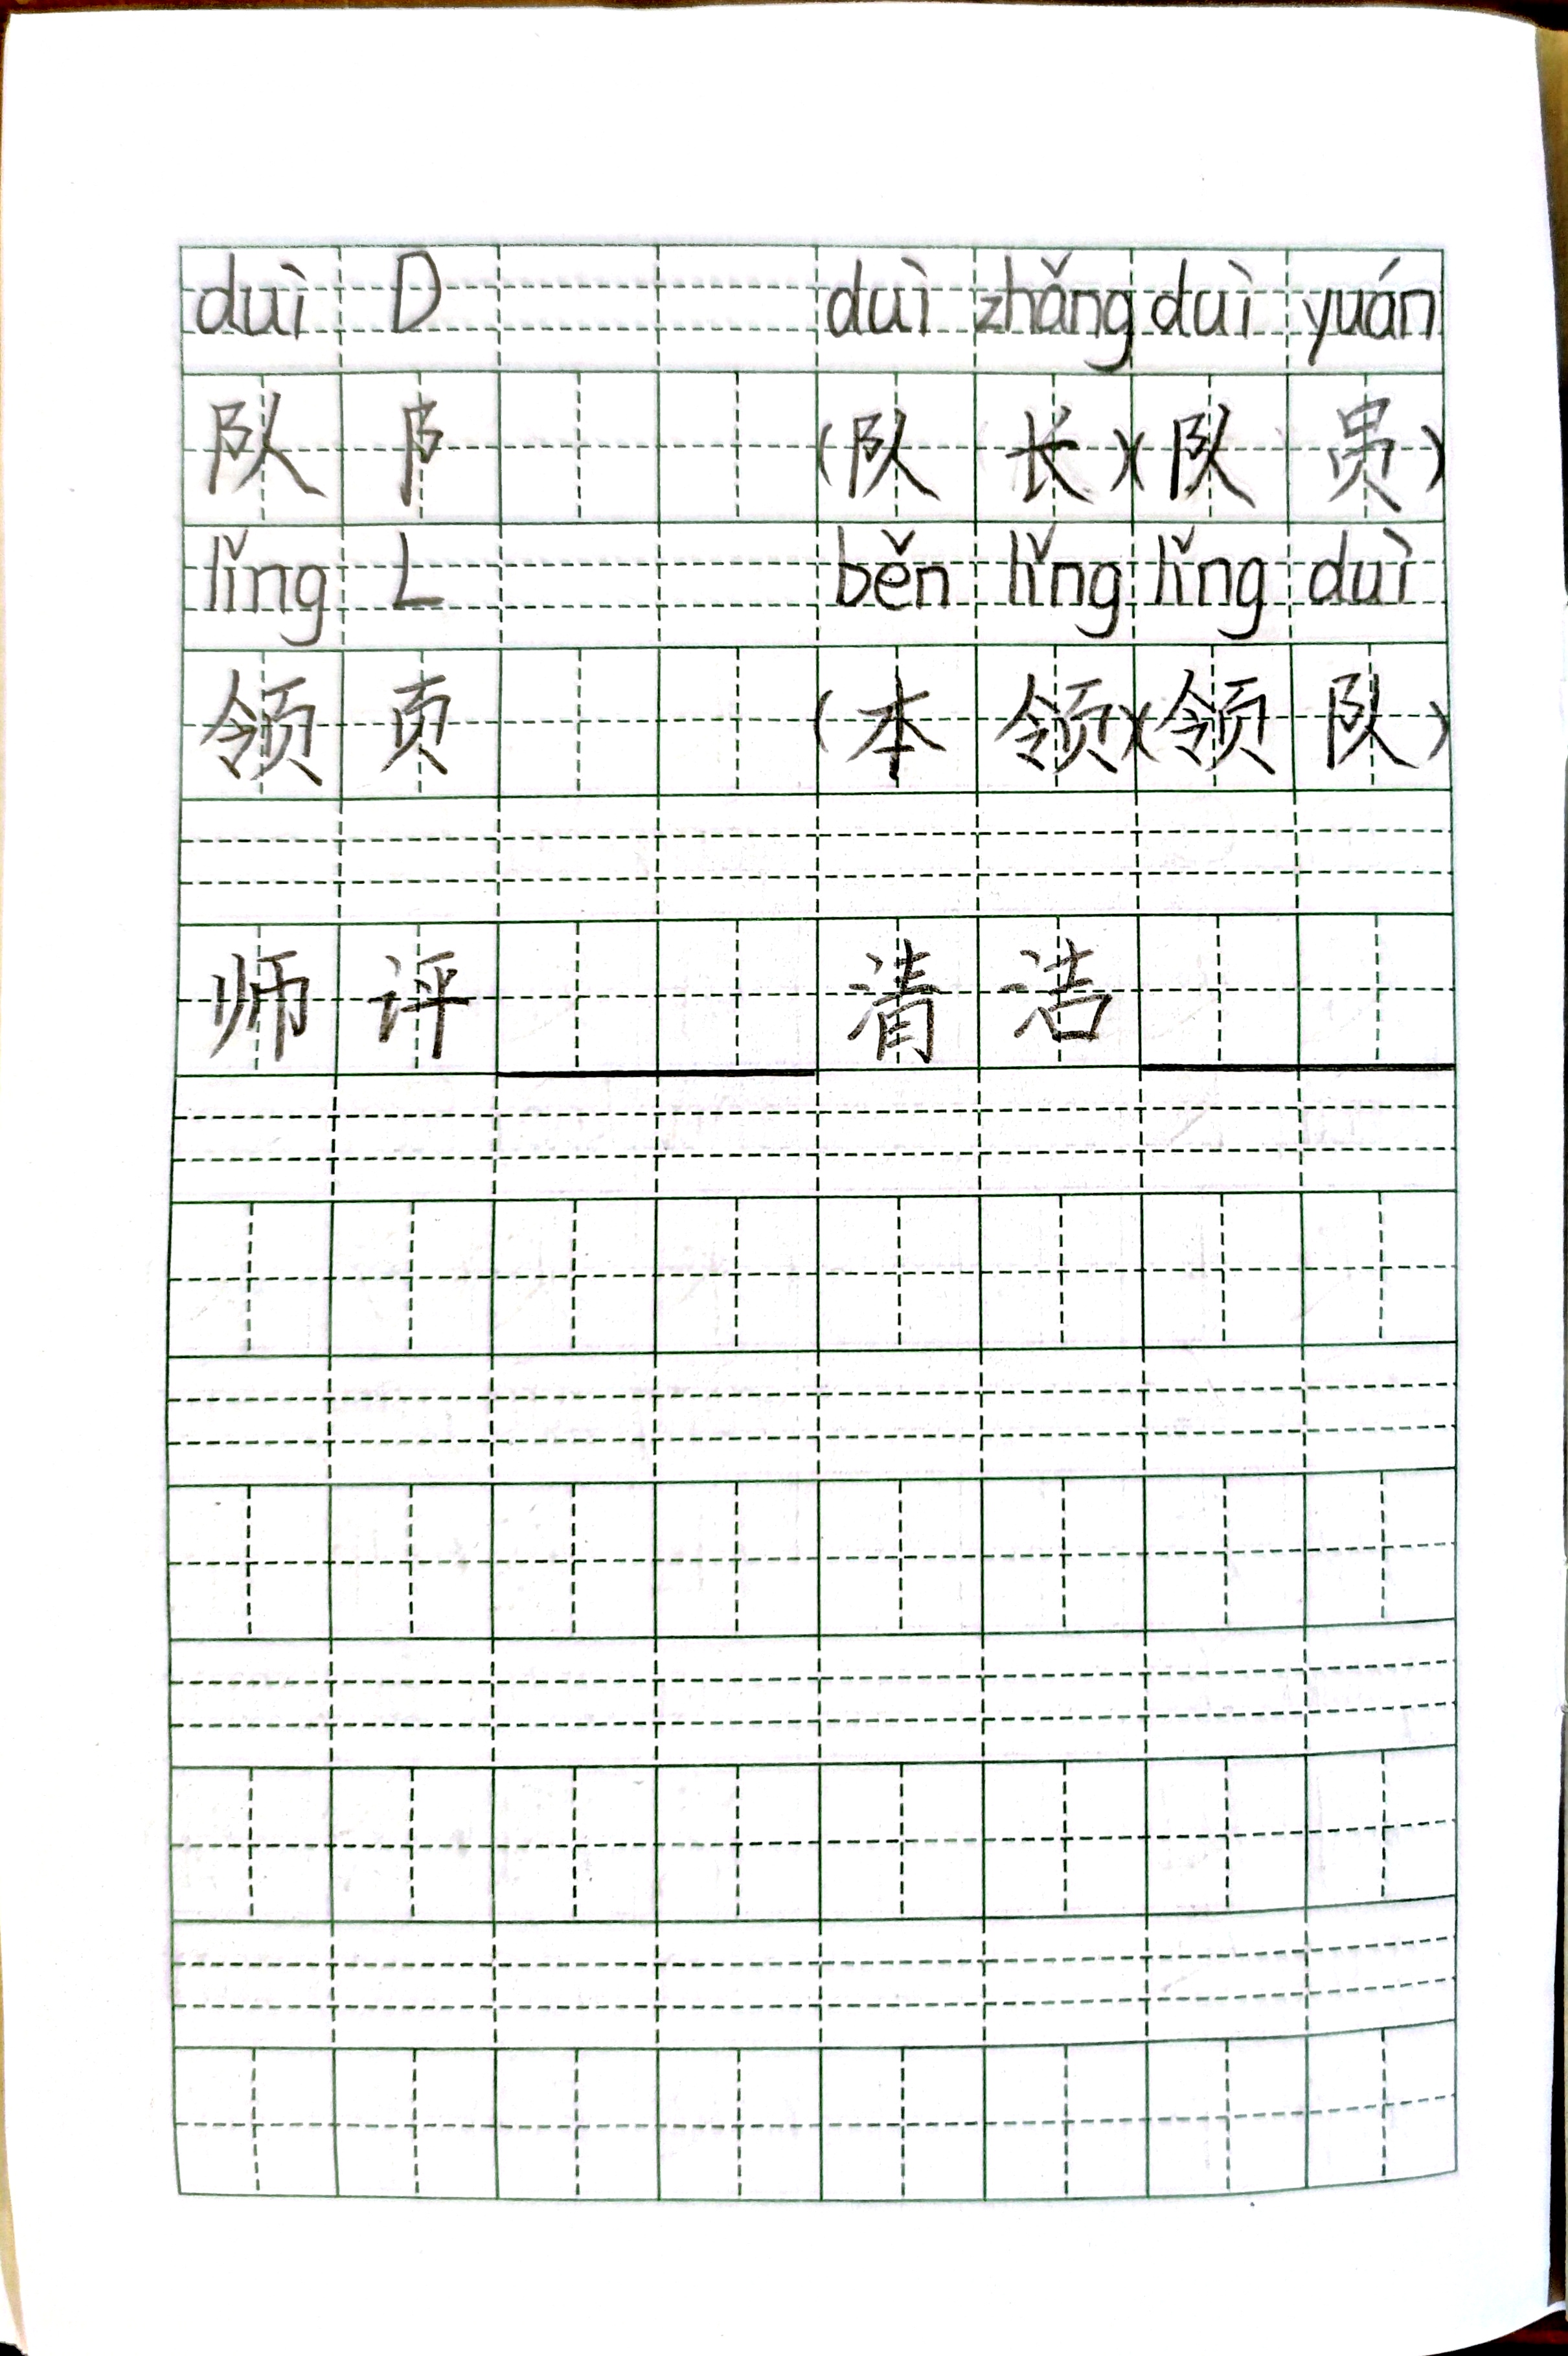 duì D duì zhǎng duì yuán
队 阝 (队 长)(队 员)
lǐng L běn lǐng lǐng duì
领 页 (本 领)(领 队)
师 评 清 洁